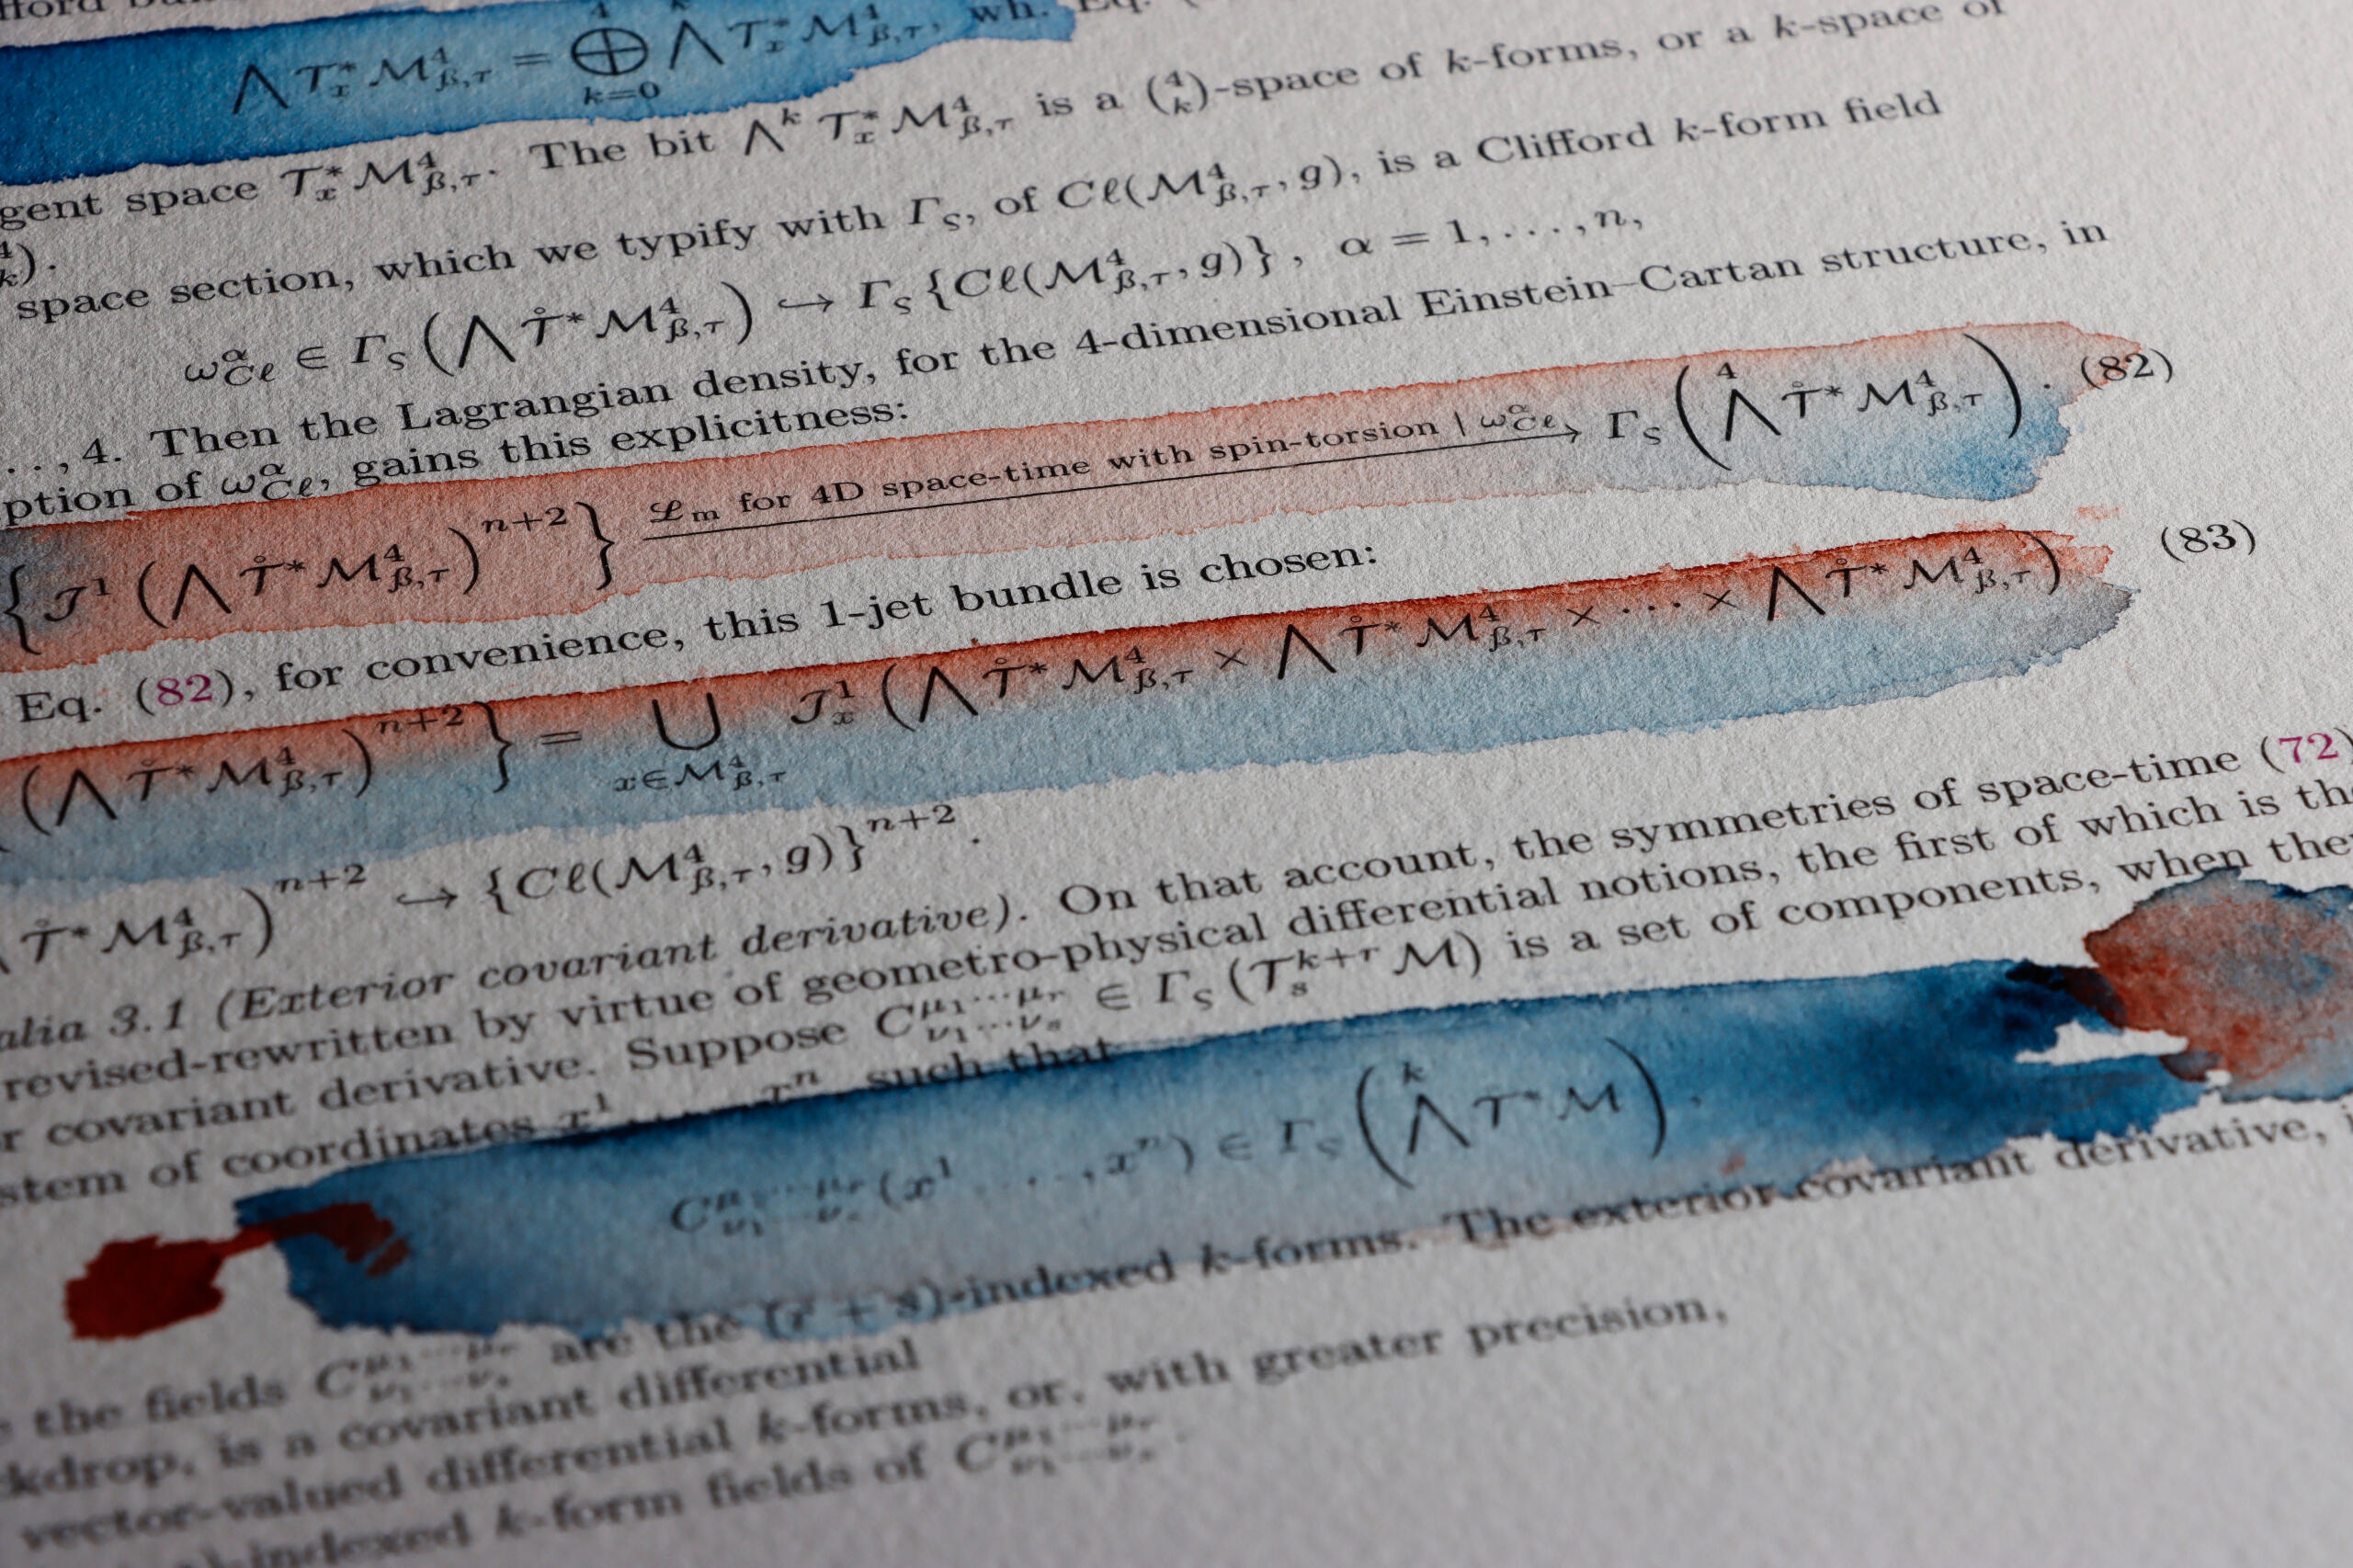 ⋀ T*ₓM⁴_ß,τ = ⊕⁴_k=0 ⋀ᵏ T*ₓM⁴_ß,τ, wh. Eq. (
gent space T*ₓM⁴_ß,τ. The bit ⋀ᵏ T*ₓM⁴_ß,τ is a (4 k)-space of k-forms, or a k-space of
4 k).
space section, which we typify with Γς, of Cℓ(M⁴_ß,τ, g), is a Clifford k-form field
ω^α_Cℓ ∈ Γς(⋀ T̊*M⁴_ß,τ) ↪ Γς{Cℓ(M⁴_ß,τ, g)}, α = 1, . . . , n,
. . , 4. Then the Lagrangian density, for the 4-dimensional Einstein–Cartan structure, in
ption of ω^α_Cℓ, gains this explicitness:
{J¹(⋀ T̊*M⁴_ß,τ)ⁿ⁺²} ℒ_m for 4D space-time with spin-torsion | ω^α_Cℓ → Γς(⋀⁴ T̊*M⁴_ß,τ). (82)
Eq. (82), for convenience, this 1-jet bundle is chosen:
(⋀ T̊*M⁴_ß,τ)ⁿ⁺²} = ⋃_x∈M⁴_ß,τ J¹ₓ(⋀ T̊*M⁴_ß,τ × ⋀ T̊*M⁴_ß,τ × ··· × ⋀ T̊*M⁴_ß,τ) (83)
T̊*M⁴_ß,τ)ⁿ⁺² ↪ {Cℓ(M⁴_ß,τ, g)}ⁿ⁺².
alia 3.1 (Exterior covariant derivative). On that account, the symmetries of space-time (72)
revised-rewritten by virtue of geometro-physical differential notions, the first of which is the
r covariant derivative. Suppose C^μ₁···μᵣ_ν₁···νₛ ∈ Γς(T^k+r_s M) is a set of components, when the
stem of coordinates x¹, . . . , xⁿ, such that
C^μ₁···μᵣ_ν₁···νₛ(x¹, . . . , xⁿ) ∈ Γς(⋀ᵏ T*M).
the fields C^μ₁···μᵣ_ν₁···νₛ are the (r + s)-indexed k-forms. The exterior covariant derivative, i
kdrop, is a covariant differential
vector-valued differential k-forms, or, with greater precision,
)-indexed k-form fields of C^μ₁···μᵣ_ν₁···νₛ